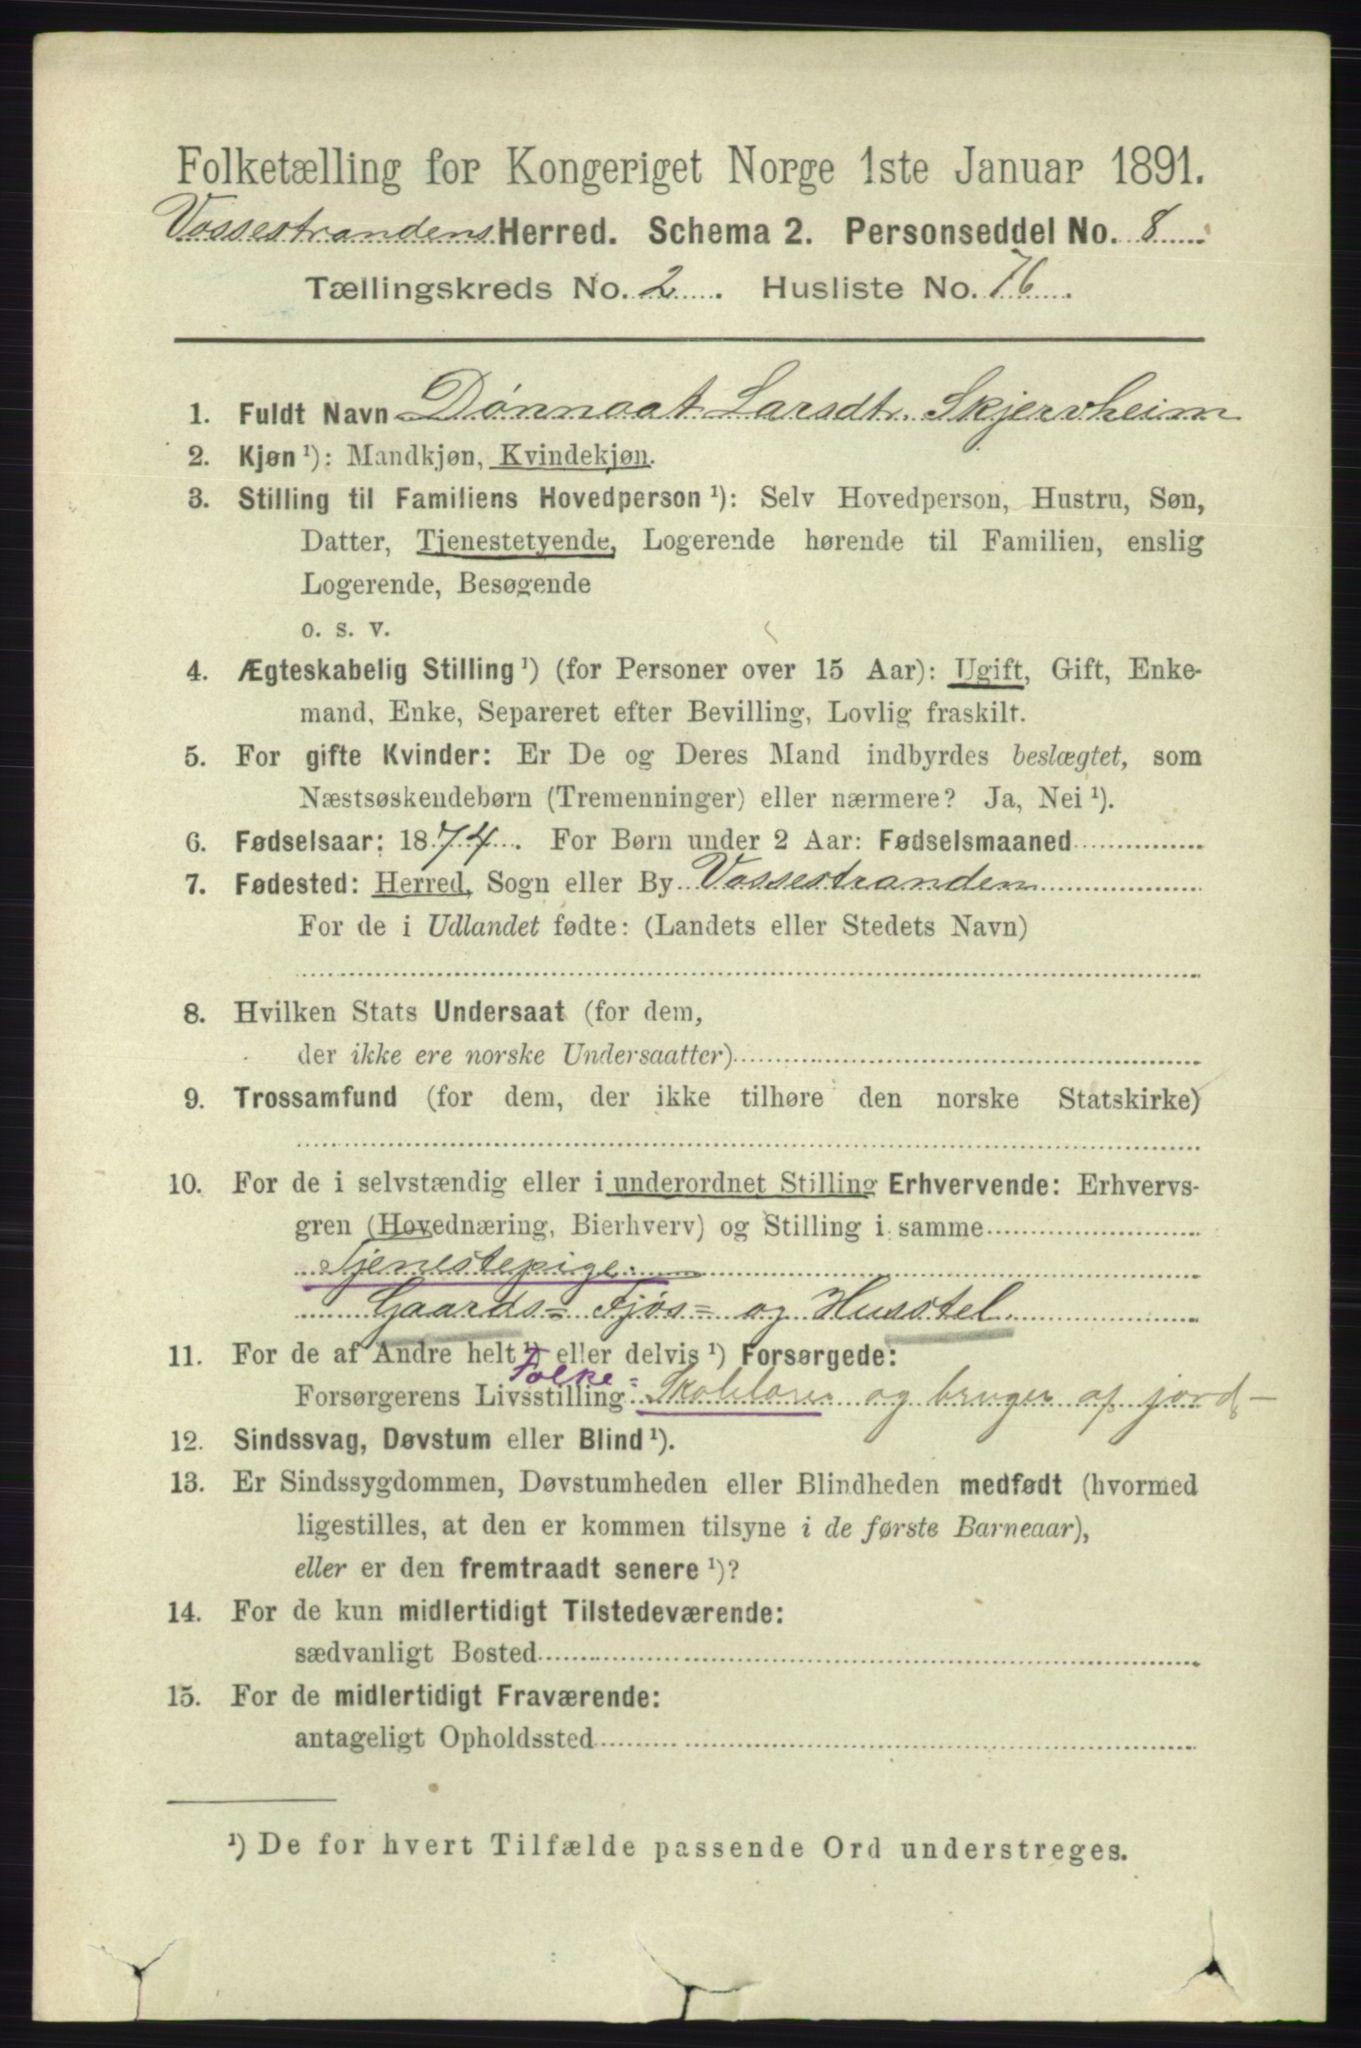 Folketælling for Kongeriget Norge 1ste Januar 1891.
Vossestrandens Herred. Schema 2. Personseddel No. 8
Tællingskreds No. 2. Husliste No. 76.
1. Fuldt Navn Dønnaat Larsdt. Skjervheim
2. Kjøn ¹): Mandkjøn, Kvindekjøn.
3. Stilling til Familiens Hovedperson ¹): Selv Hovedperson, Hustru, Søn,
Datter, Tjenestetyende, Logerende hørende til Familien, enslig
Logerende, Besøgende
o. s. v.
4. Ægteskabelig Stilling ¹) (for Personer over 15 Aar): Ugift, Gift, Enke-
mand, Enke, Separeret efter Bevilling, Lovlig fraskilt.
5. For gifte Kvinder: Er De og Deres Mand indbyrdes beslægtet, som
Næstsøskendebørn (Tremenninger) eller nærmere? Ja, Nei ¹).
6. Fødselsaar: 1874. For Børn under 2 Aar: Fødselsmaaned
7. Fødested: Herred, Sogn eller By Vossestranden
For de i Udlandet fødte: (Landets eller Stedets Navn)
8. Hvilken Stats Undersaat (for dem,
der ikke ere norske Undersaatter)
9. Trossamfund (for dem, der ikke tilhøre den norske Statskirke)
10. For de i selvstændig eller i underordnet Stilling Erhvervende: Erhvervs-
gren (Hovednæring, Bierhverv) og Stilling i samme
Tjenestepige.
Gaards= Fjøs= og Husstel.
11. For de af Andre helt ¹) eller delvis ¹) Forsørgede:
Folke=
Forsørgerens Livsstilling Skolelærer og bruger af jord
12. Sindssvag, Døvstum eller Blind ¹).
13. Er Sindssygdommen, Døvstumheden eller Blindheden medfødt (hvormed
ligestilles, at den er kommen tilsyne i de første Barneaar),
eller er den fremtraadt senere ¹)?
14. For de kun midlertidigt Tilstedeværende:
sædvanligt Bosted
15. For de midlertidigt Fraværende:
antageligt Opholdssted
¹) De for hvert Tilfælde passende Ord understreges.